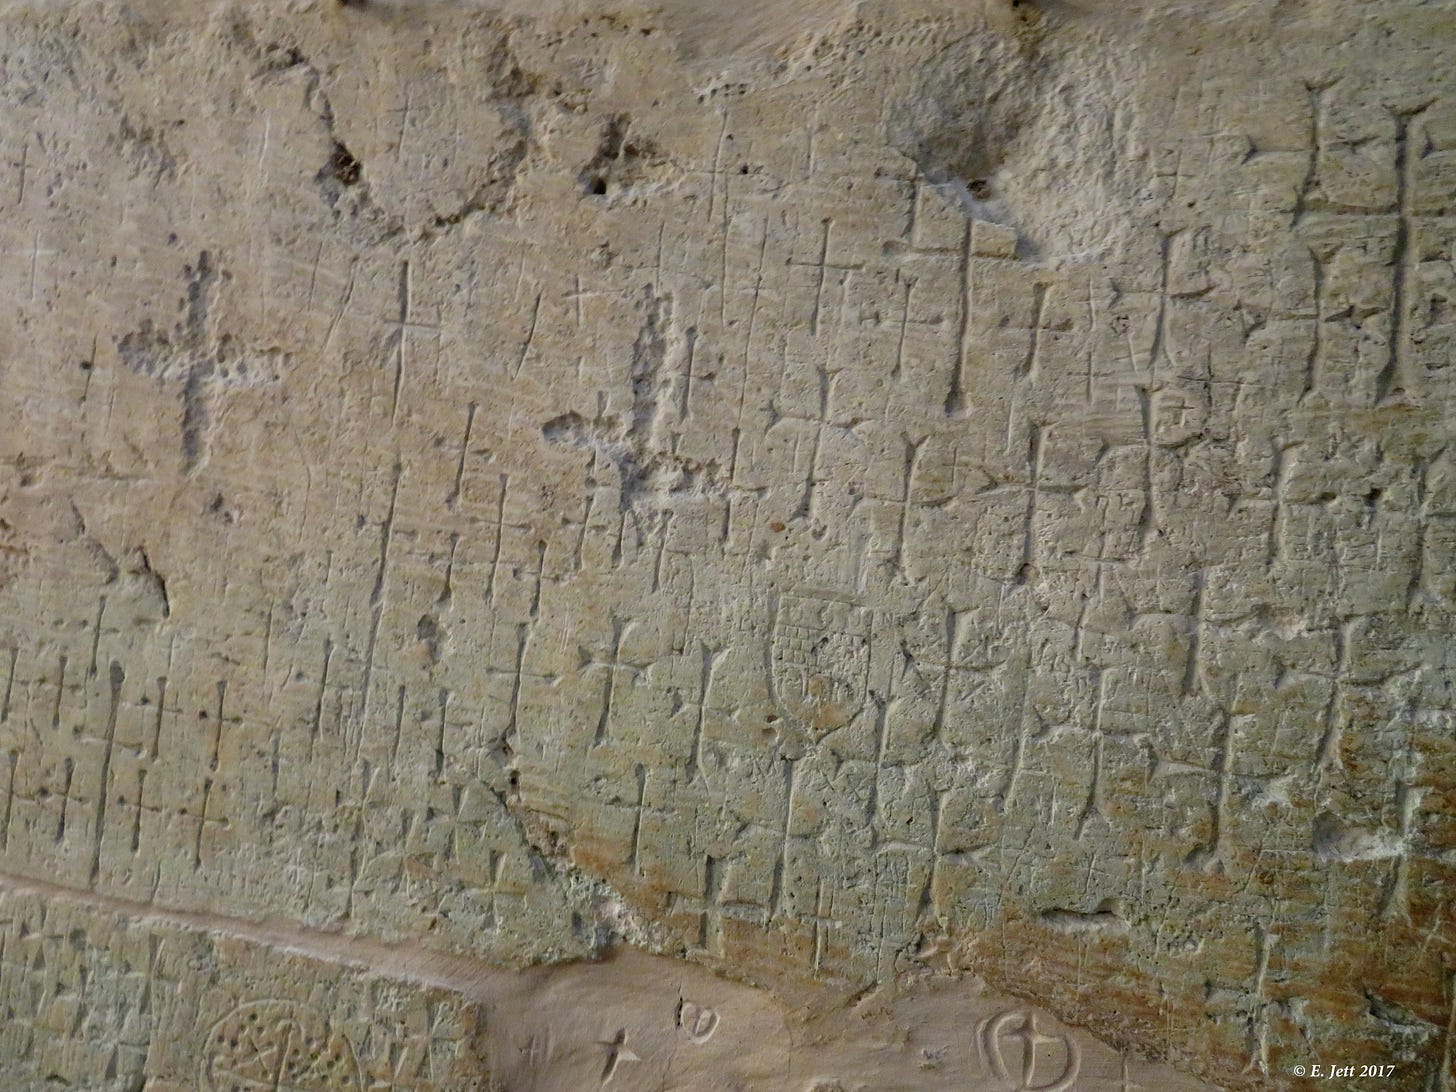 © E. Jett 2017